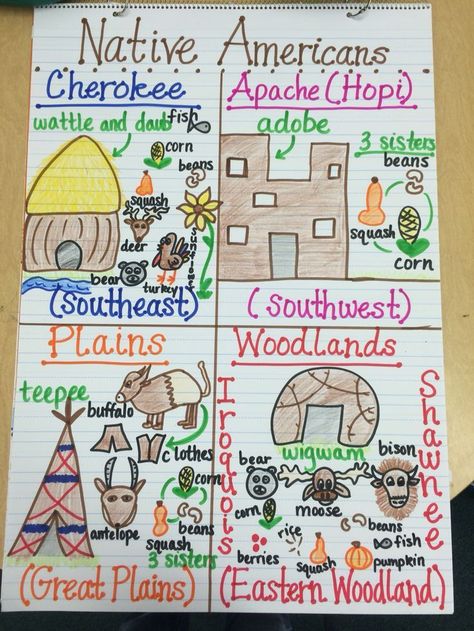 Native Americans
Cherokee
wattle and daub
fish
corn
beans
squash
deer
sunflower
bear
turkey
(Southeast)
Apache (Hopi)
adobe
3 sisters
beans
squash
corn
(Southwest)
Plains
teepee
buffalo
clothes
antelope
corn
beans
squash
3 sisters
(Great Plains)
Woodlands
Iroquois
Shawnee
wigwam
bear
moose
bison
corn
rice
berries
squash
pumpkin
beans
fish
(Eastern Woodland)